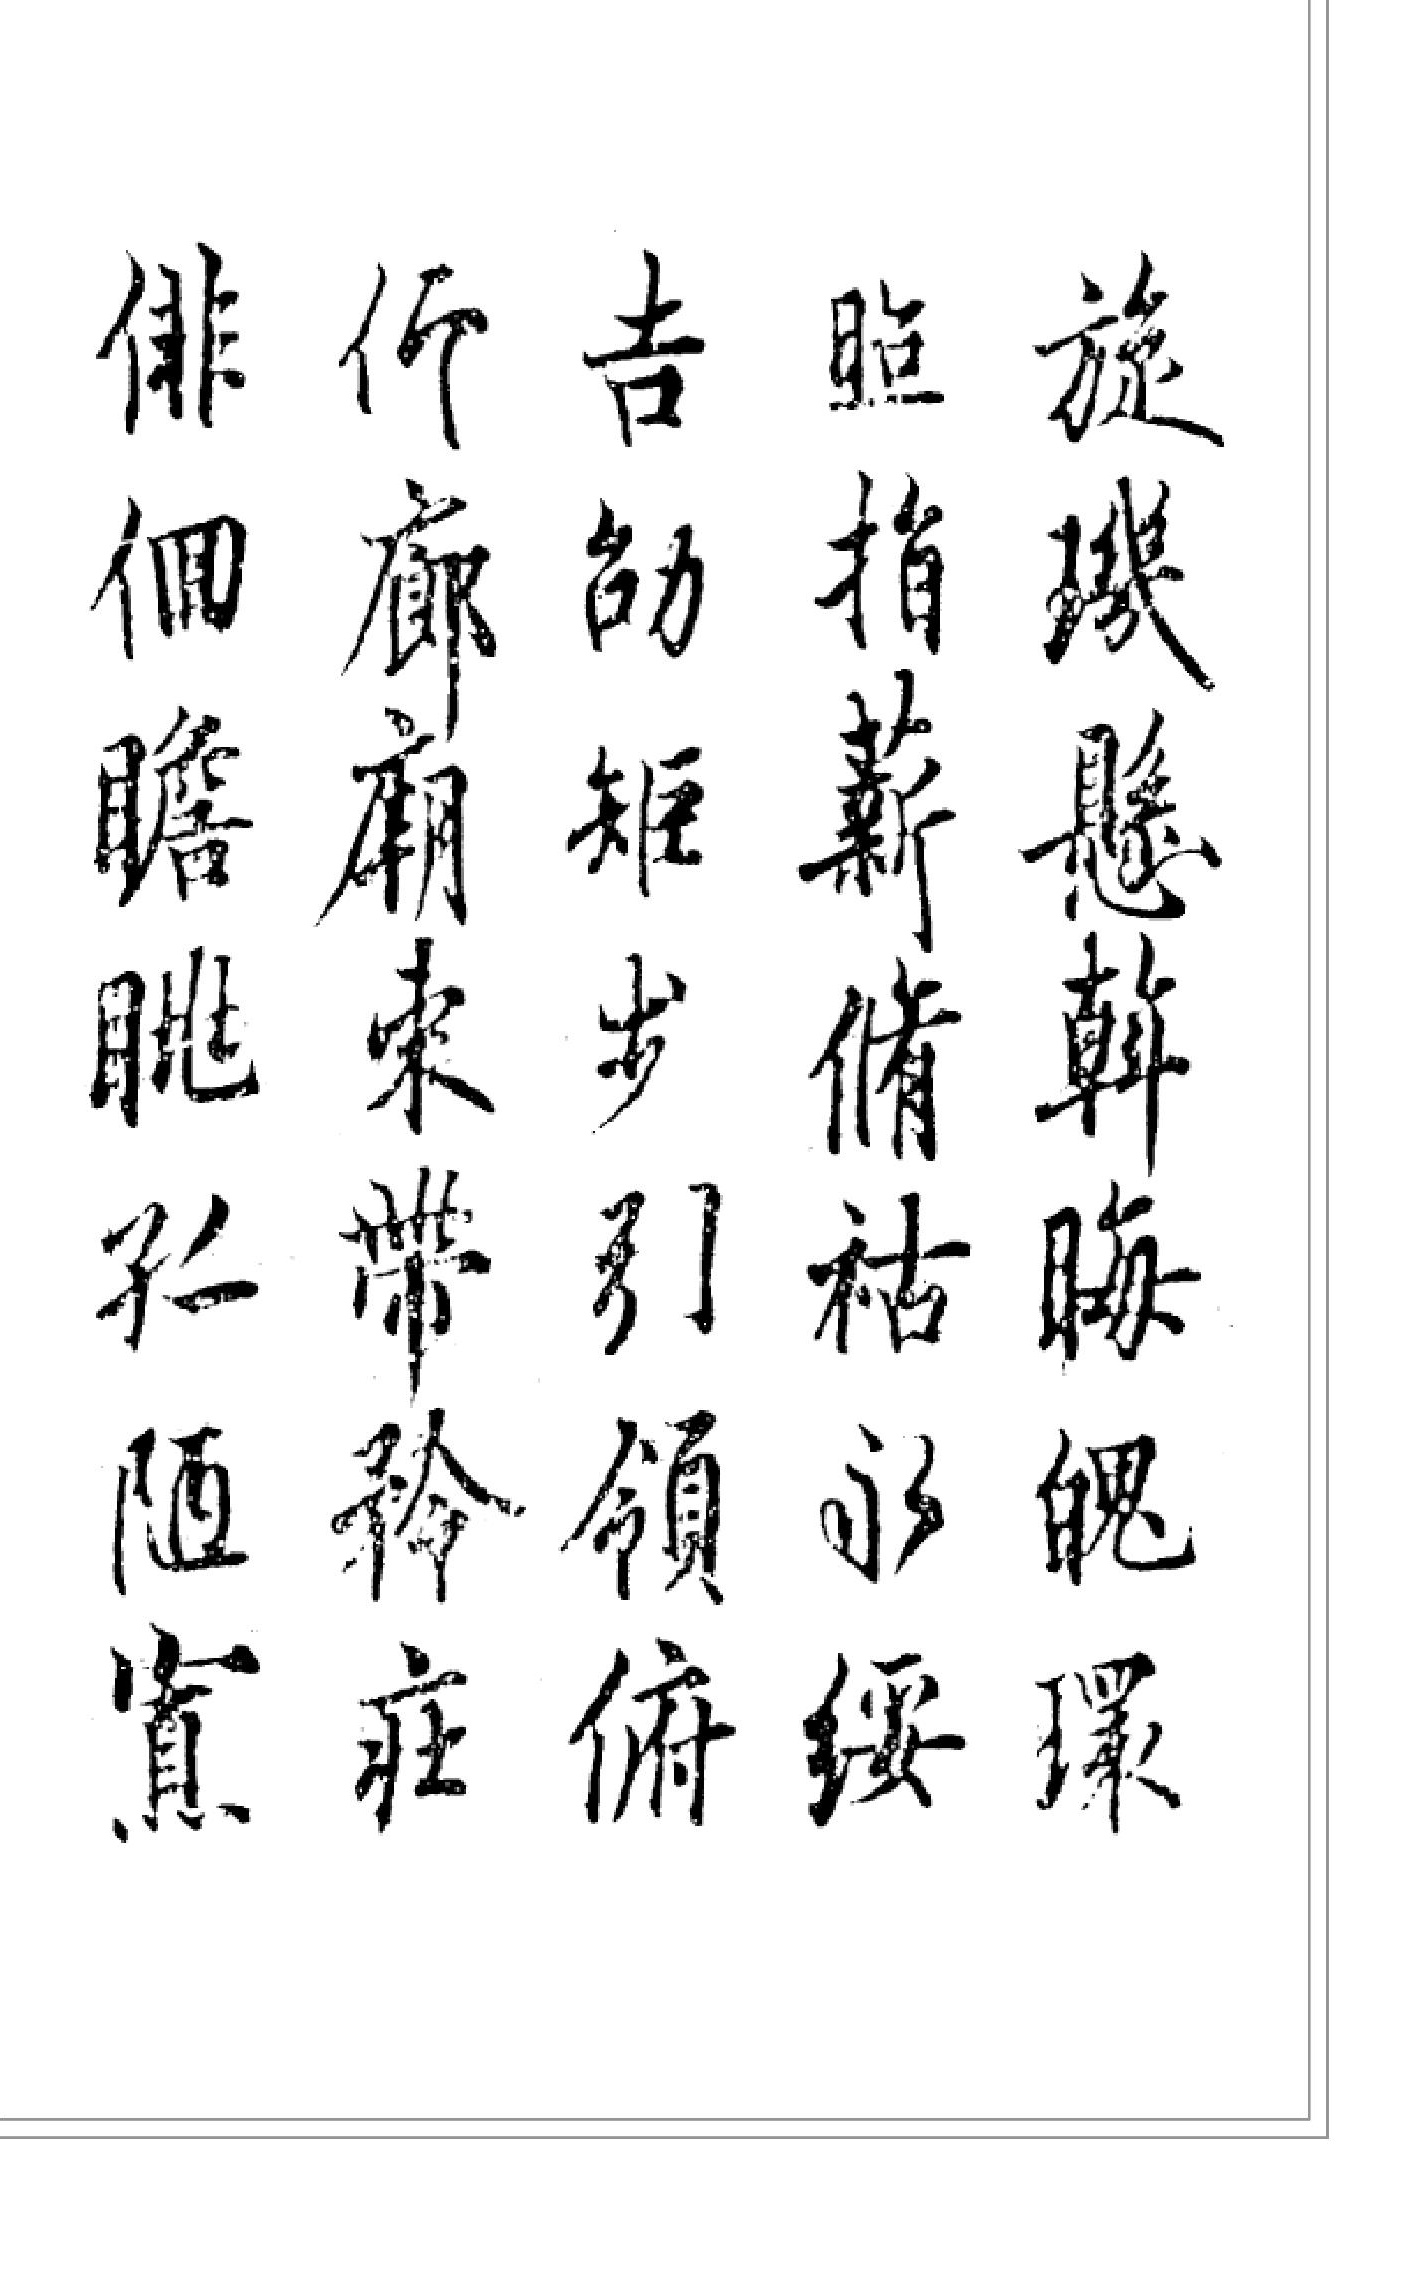 旋璣懸斡晦魄環
照指薪脩祜永綏
吉劭矩步引領俯
仰廊廟束帶矜莊
俳佪瞻眺孤陋寡